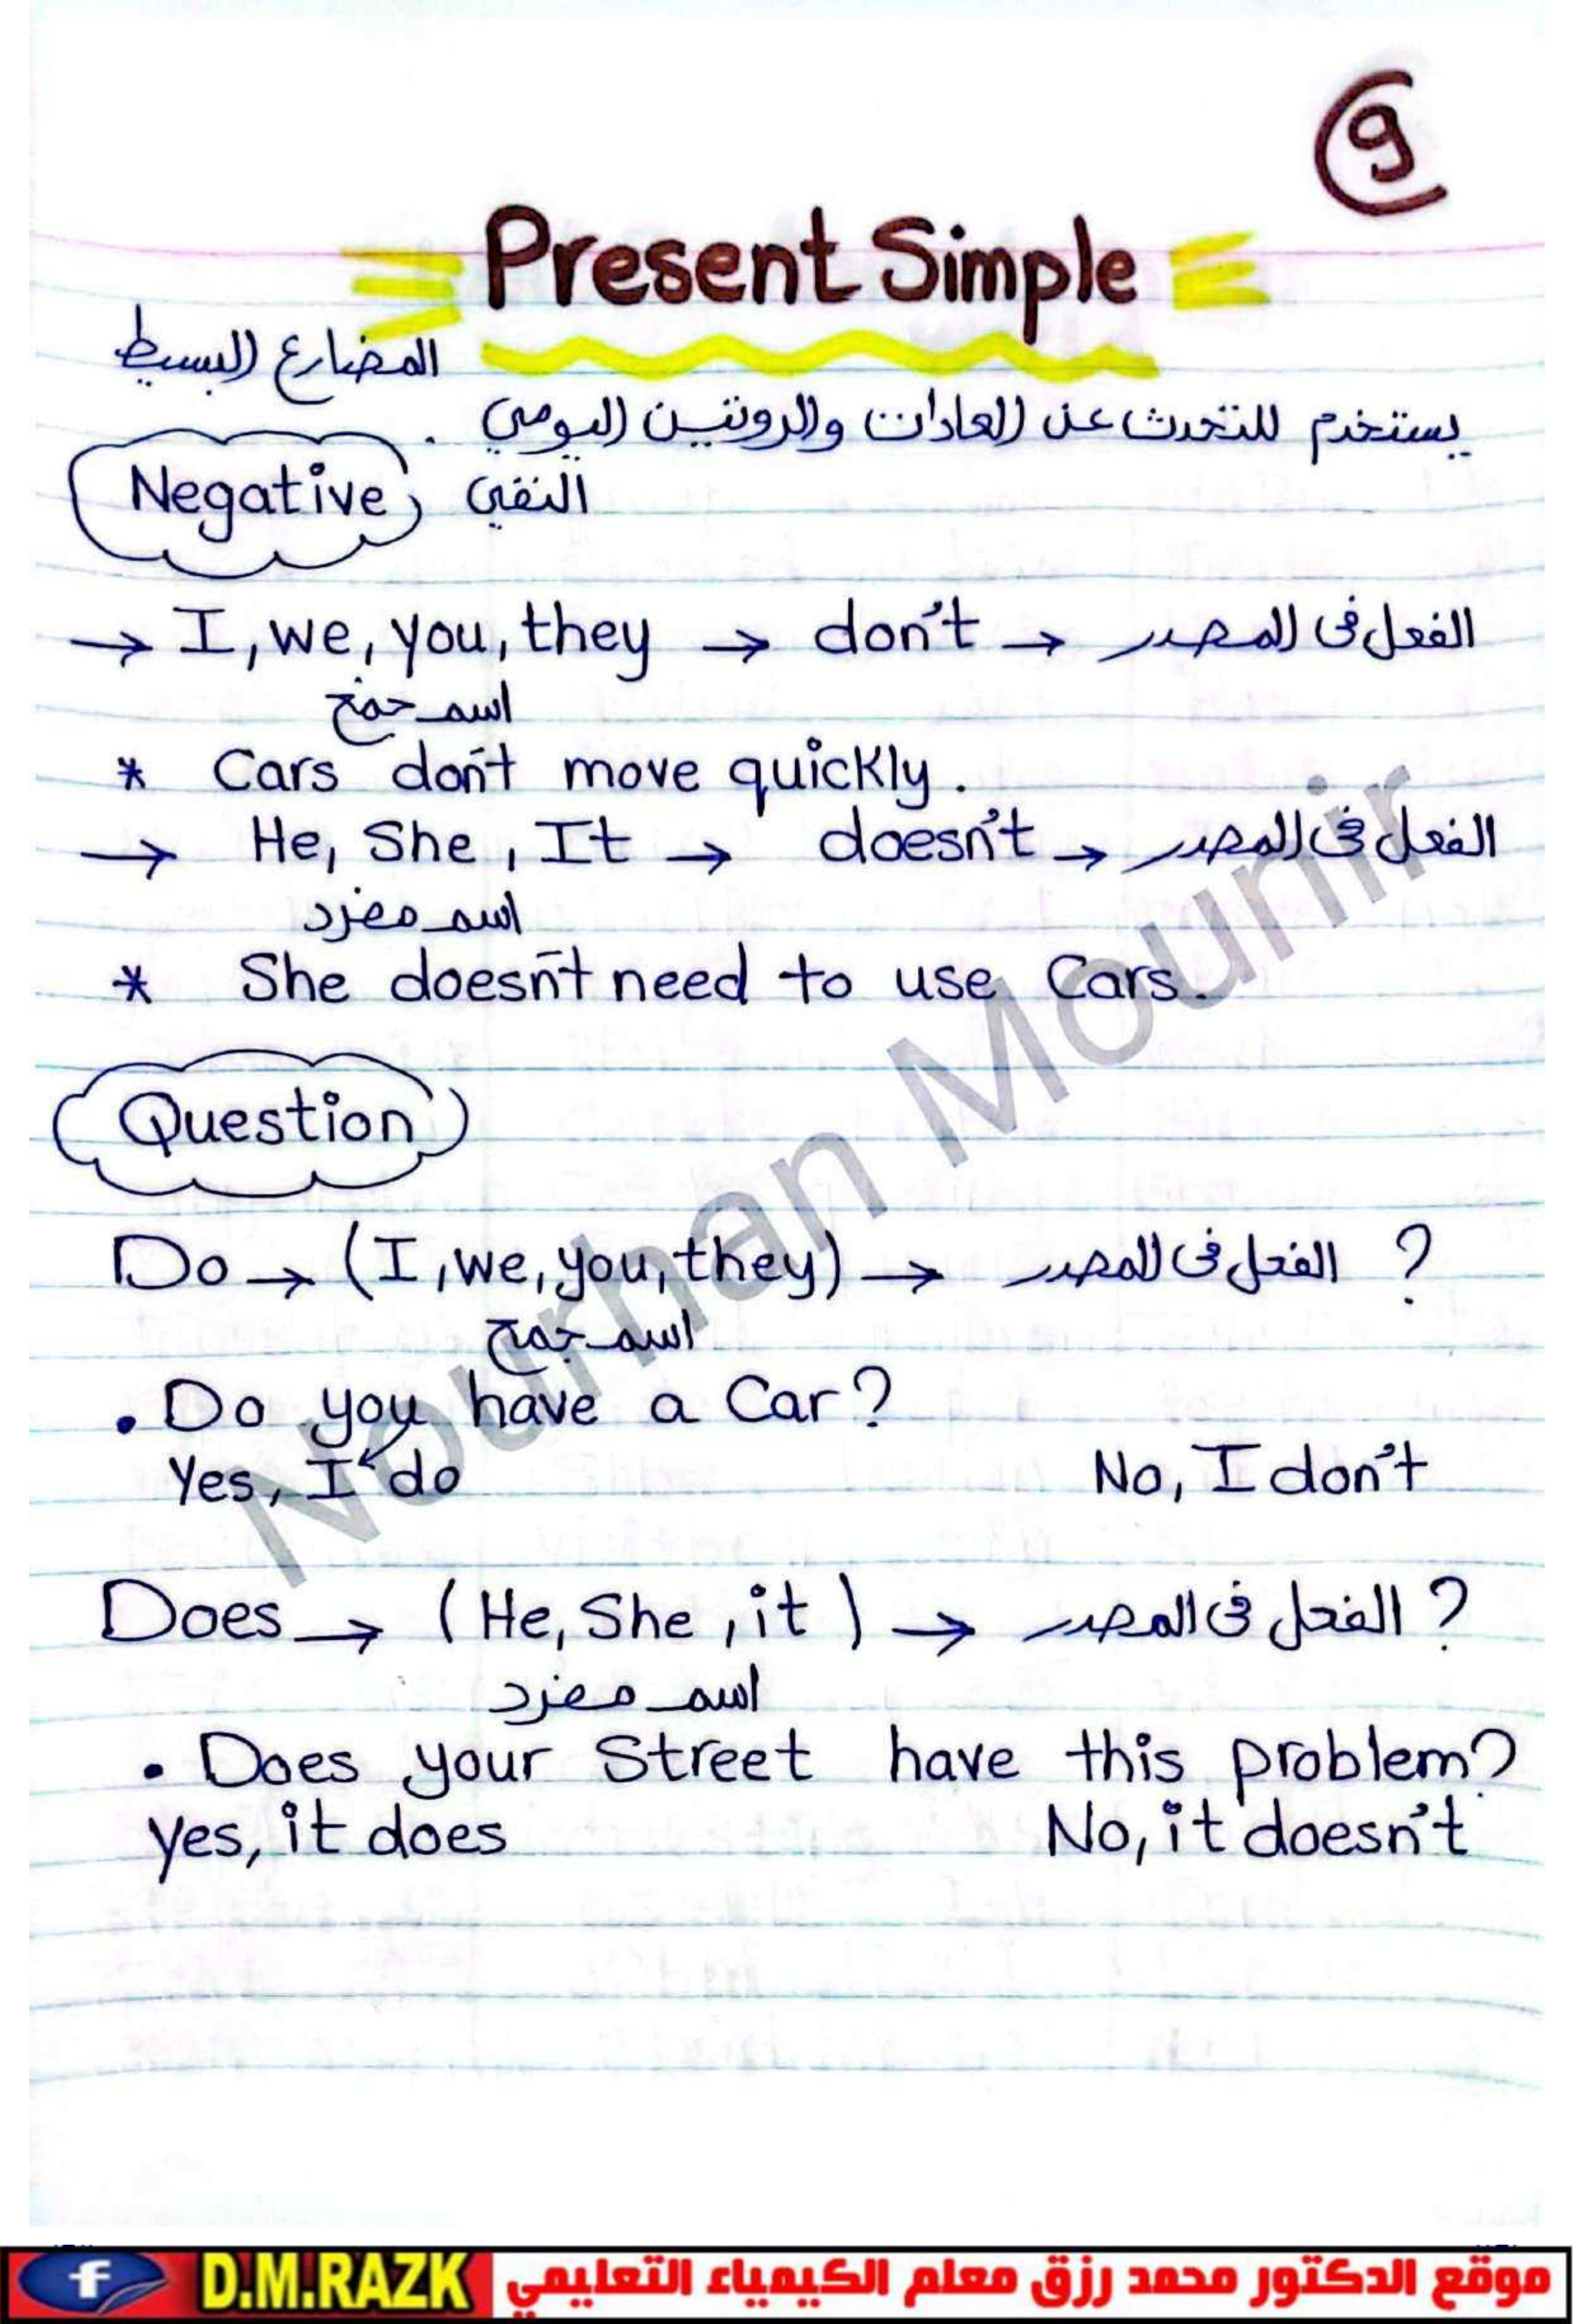 9
Present Simple
المضارع البسيط
يستخدم للتحدث عن العادات والروتين اليومي .
Negative النفي
→ I, we, you, they → don't → الفعل فى المصدر
اسم جمع
* Cars don't move quickly.
→ He, She, It → doesn't → الفعل فى المصدر
اسم مفرد
* She doesn't need to use Cars.
Question
Do → (I, we, you, they) → الفعل فى المصدر ?
اسم جمع
. Do you have a Car?
Yes, I do No, I don't
Does → (He, She, it) → الفعل فى المصدر ?
اسم مفرد
. Does your Street have this problem?
yes, it does No, it doesn't
Nourhan Mounir
f D.M.RAZK موقع الدكتور محمد رزق معلم الكيمياء التعليمي